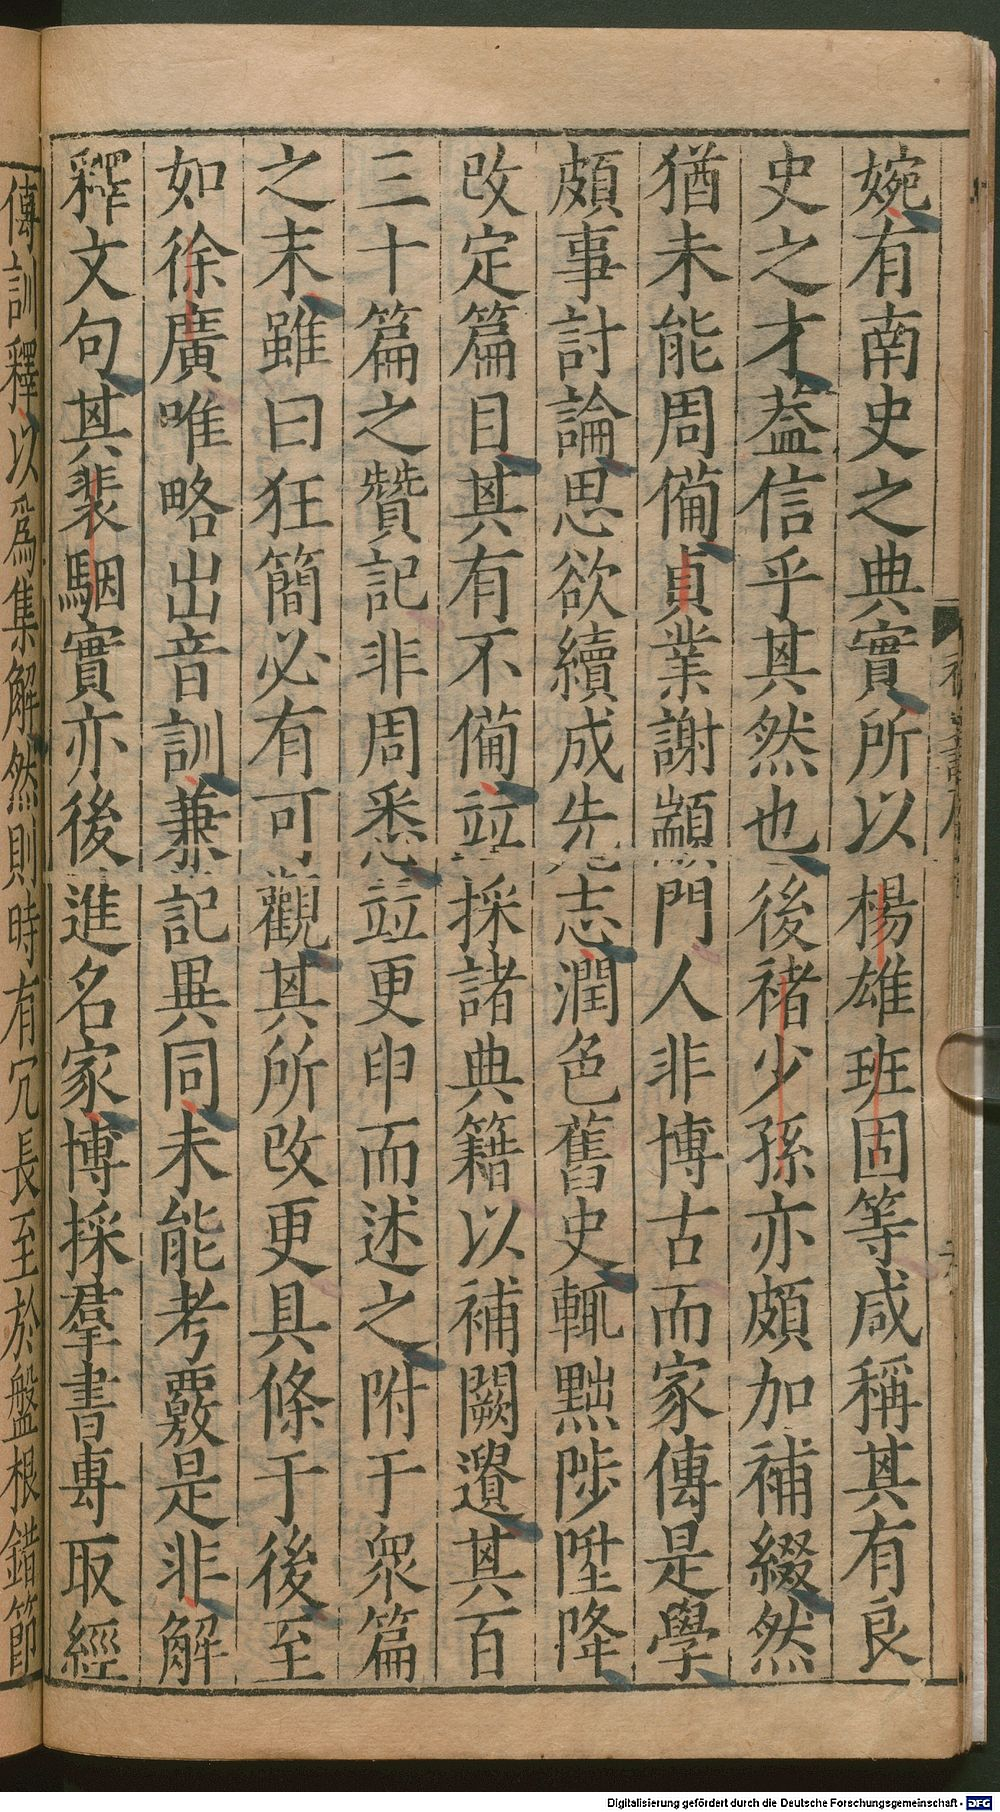 婉有南史之典實所以楊雄班固等咸稱其有良
史之才葢信乎其然也後禇少孫亦頗加補綴然
猶未能周備貞業謝顓門人非博古而家傳是學
頗事討論思欲續成先志潤色舊史輒黜陟陞降
改定篇目其有不備竝採諸典籍以補闕遺其百
三十篇之贊記非周悉竝更申而述之附于衆篇
之末雖曰狂簡必有可觀其所改更具條于後至
如徐廣唯略出音訓兼記異同未能考覈是非解
釋文句其裴駰實亦後進名家博採羣書專取經
傳訓釋以爲集解然則時有冗長至於盤根錯節
Digitalisierung gefördert durch die Deutsche Forschungsgemeinschaft - DFG